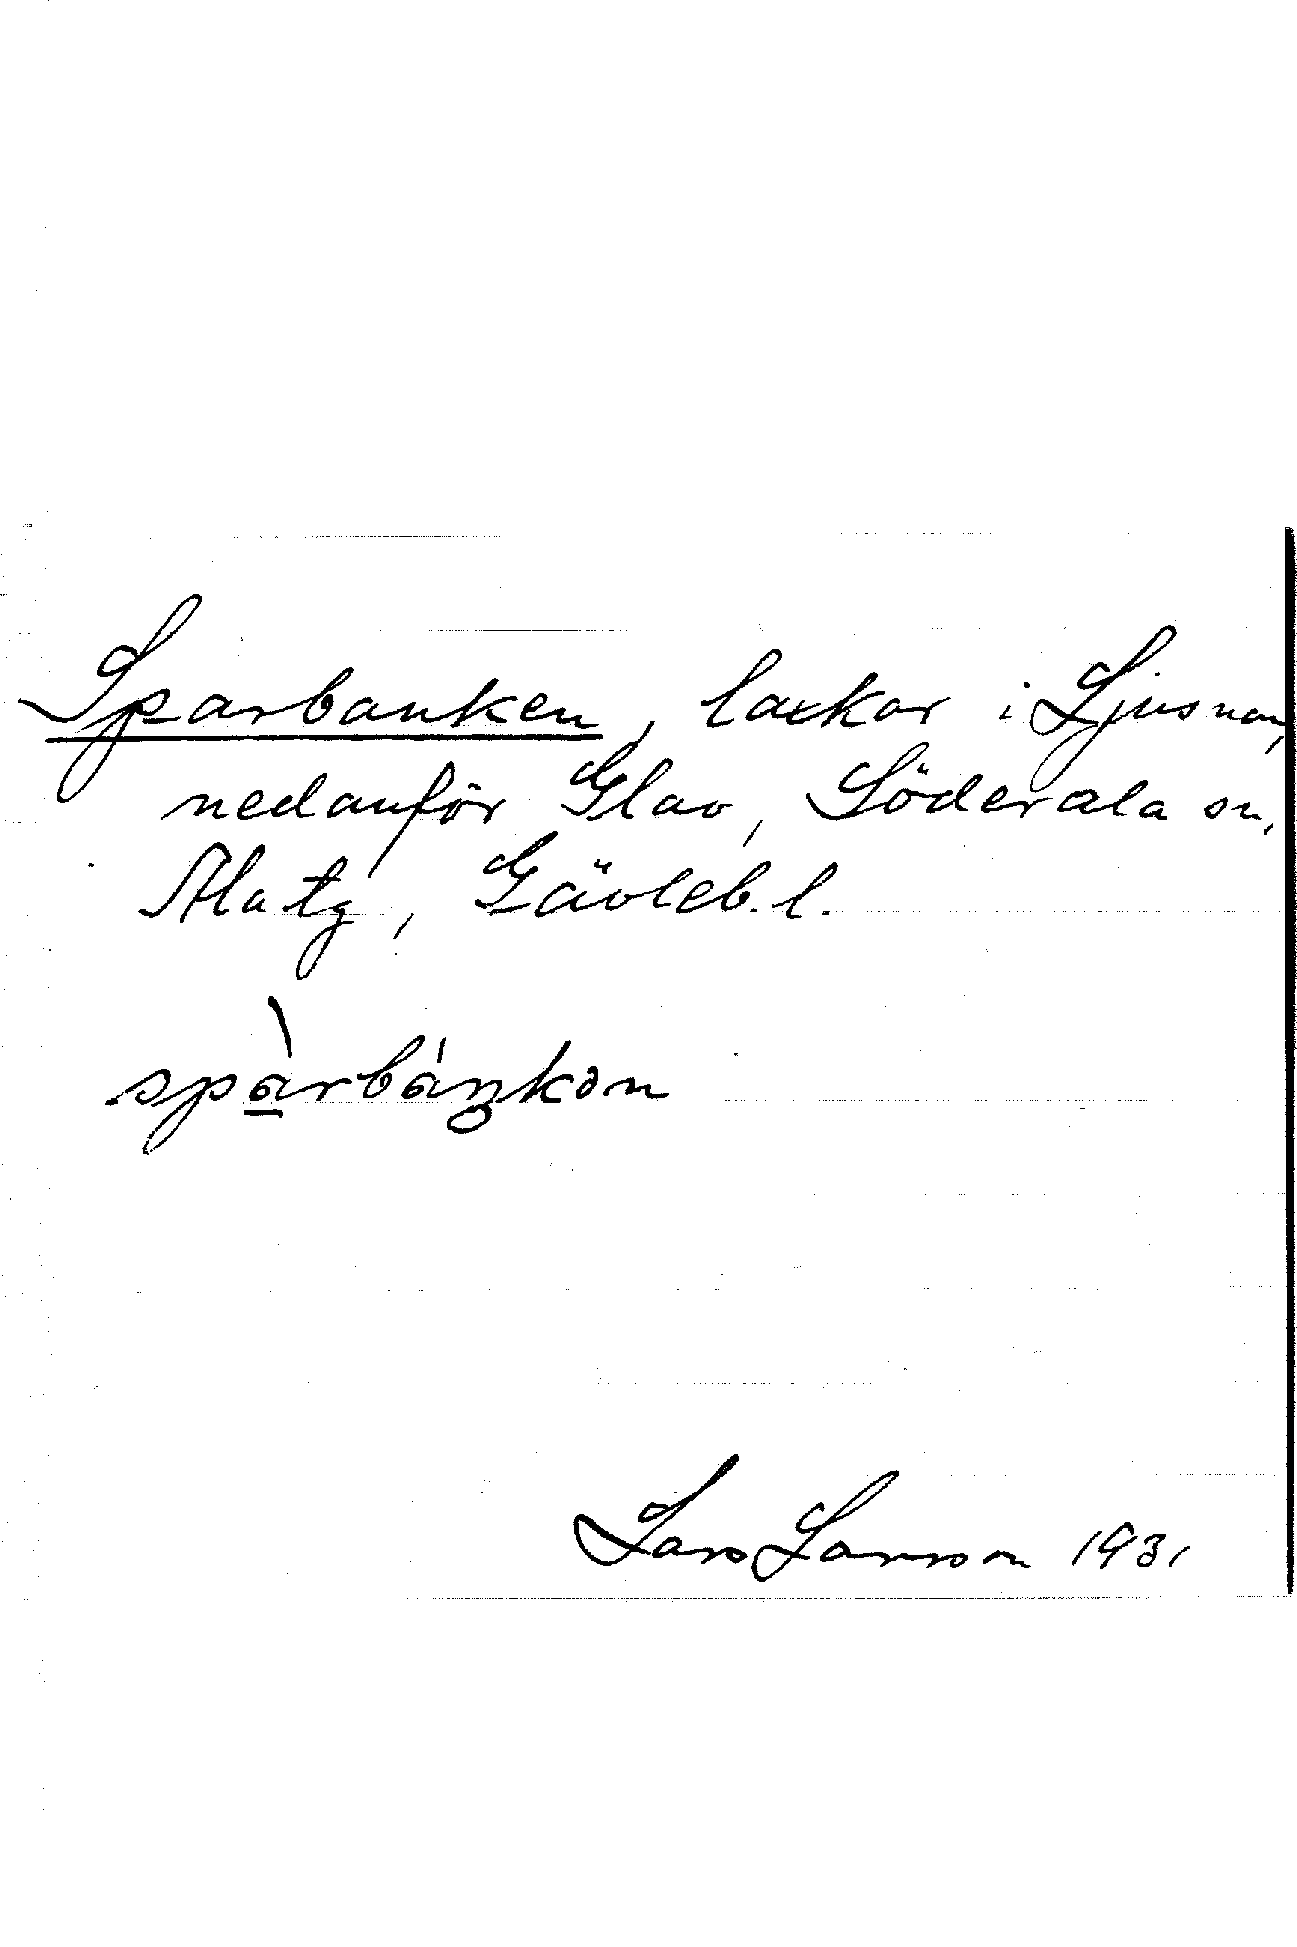 Sparbanken, laxkar i Ljusnan,
nedanför Glav, Söderala sn,
Alatg, Gävleb. l.
spàrbáŋkən
Lars Larsson 1931